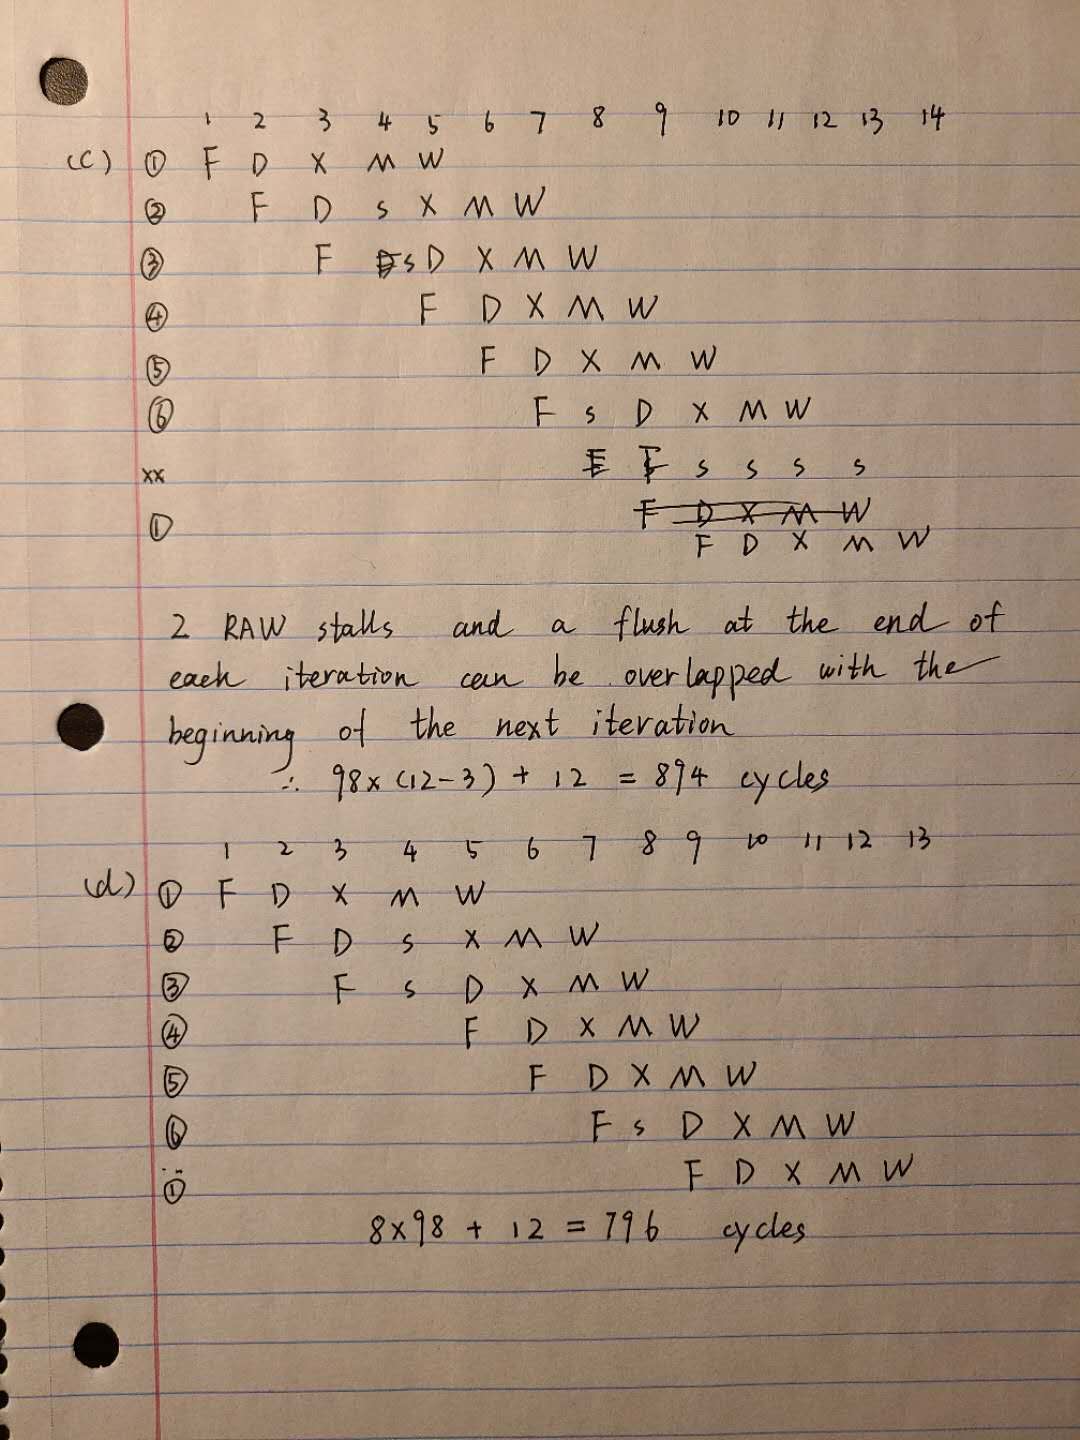 1 2 3 4 5 6 7 8 9 10 11 12 13 14
(c) ① F D X M W
② F D s X M W
③ F s D X M W
④ F D X M W
⑤ F D X M W
⑥ F s D X M W
xx F s s s s
F D X M W
① F D X M W
2 RAW stalls and a flush at the end of
each iteration can be overlapped with the
beginning of the next iteration
∴ 98x(12-3) + 12 = 894 cycles
1 2 3 4 5 6 7 8 9 10 11 12 13
(d) ① F D X M W
② F D s X M W
③ F s D X M W
④ F D X M W
⑤ F D X M W
⑥ F s D X M W
① F D X M W
8x98 + 12 = 796 cycles